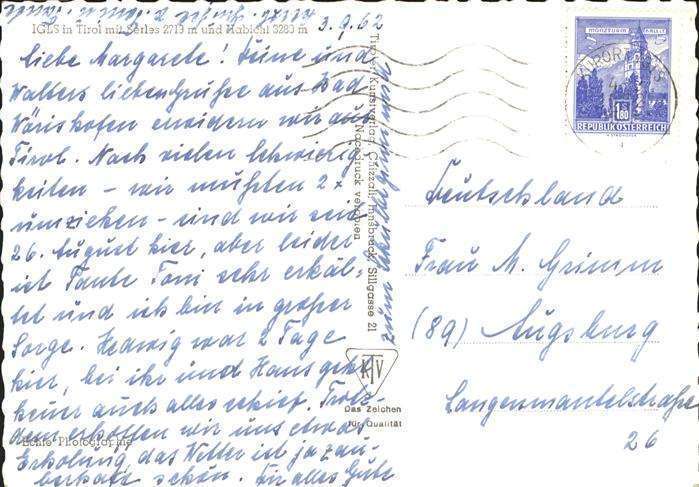 3.9.62
IGLS in Tirol mit Serles 2719 m und Habicht 3280 m
Liebe Margarete! Deine und
Walters lieben Grüße aus Bad
Wörishofen erwidern wir aus
Tirol. Nach vielen Schwierig
keiten - wir mußten 2x
umziehen - sind wir seit
26. August hier, aber leider
ist Tante Toni sehr erkäl-
tet und ich bin in großer
Sorge. Hedwig war 2 Tage
hier, bei ihr und Hans geht
heuer auch alles schief. Trotz-
dem erhoffen wir uns etwas
Echte Photographie
Erholung, das Wetter ist ja zau-
berhaft schön. Für alles Gute
zum
Tiroler Kunstverlag Chizzali, Innsbruck, Sillgasse 21
Nachdruck verboten
KTV
Das Zeichen
für Qualität
MÜNZTURM HALL I.T.
S 1.80
REPUBLIK ÖSTERREICH
Deutschland
Frau M. Grimm
(89) Augsburg
Langenmantelstraße
26